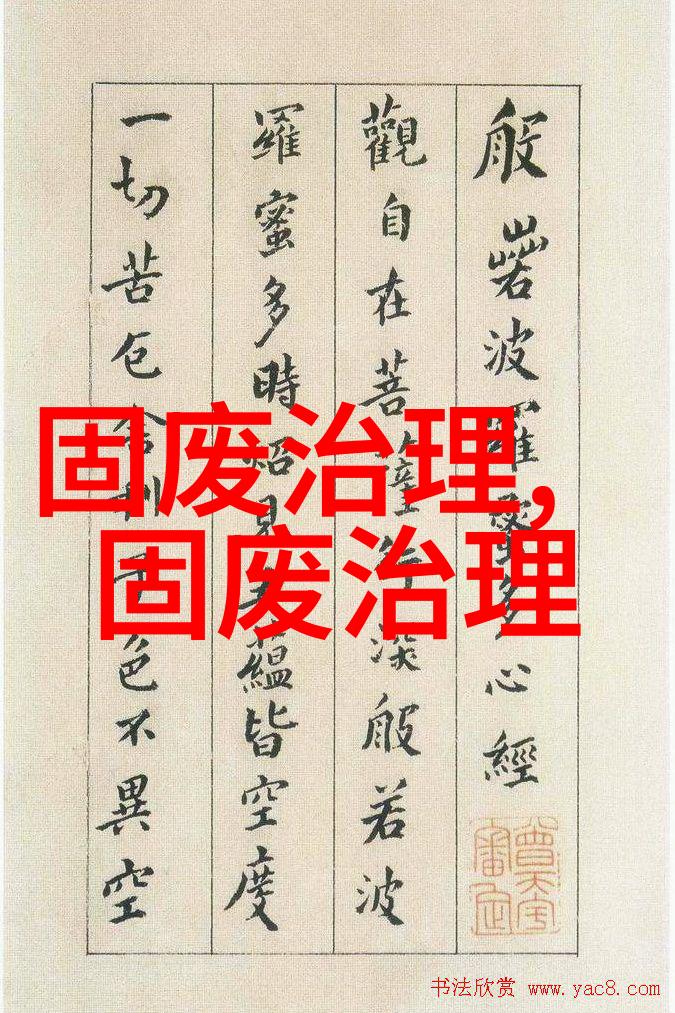 般若波羅蜜多心經
觀自在菩薩行深般若波
羅蜜多時炤見五蘊皆空度
一切苦厄舍利子色不異空
固废治理,
固废治理
书法欣赏 www.yac8.com